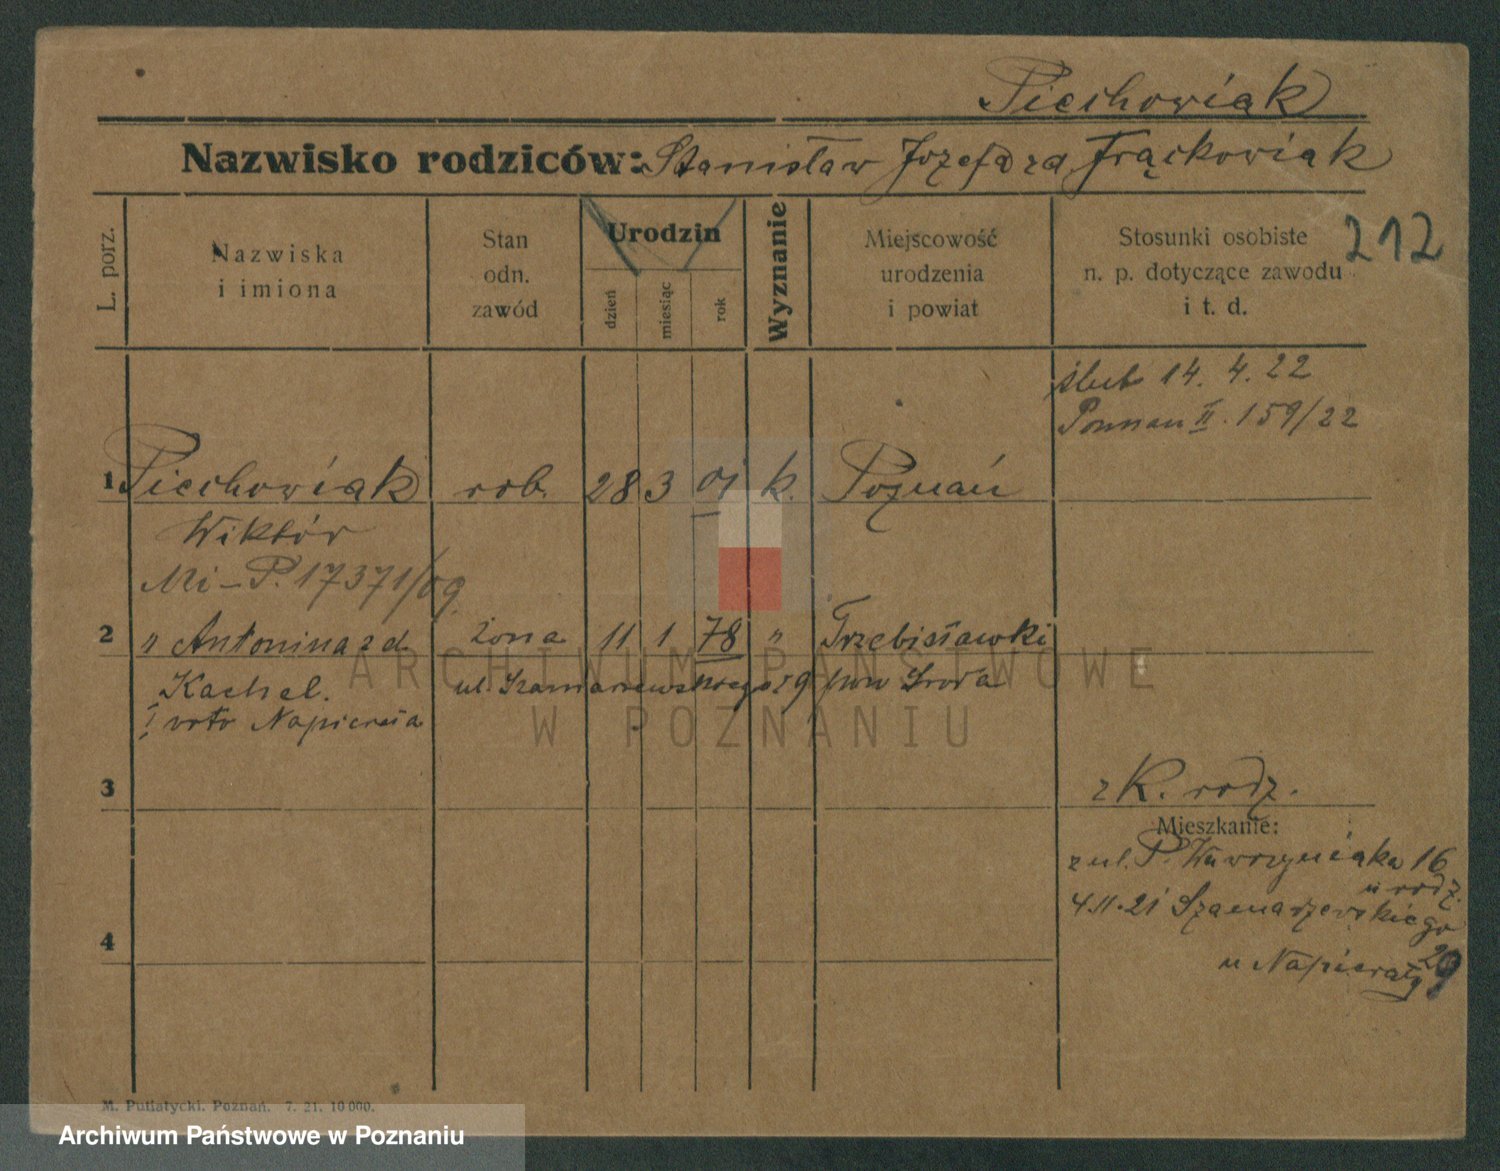 Piechowiak
Nazwisko rodziców: Stanisław Józefa zd. Frąckowiak
212
L. porz.
Nazwiska
i imiona
Stan
odn.
zawód
Urodzin
dzień
miesiąc
rok
Wyznanie
Miejscowość
urodzenia
i powiat
Stosunki osobiste
n. p. dotyczące zawodu
i t. d.
ślub 14. 4. 22
Poznań II. 159/22
1 Piechowiak rob. 28 3 01 k. Poznań
Wiktór
Mi-P. 17371/09
2 " Antonina zd. żona 11 1 78 " Trzebisławki
Kachel. ul. Szamarzewskiego 29 pow Środa
I voto Napierała
3
z K. rodz.
Mieszkanie:
z ul. P. Wawrzyniaka 16
u rodz.
4.11.21 Szamarzewskiego
29
u Napierały
4
M. Putiatycki. Poznań. 7. 21. 10 000.
ARCHIWUM PAŃSTWOWE
W POZNANIU
Archiwum Państwowe w Poznaniu